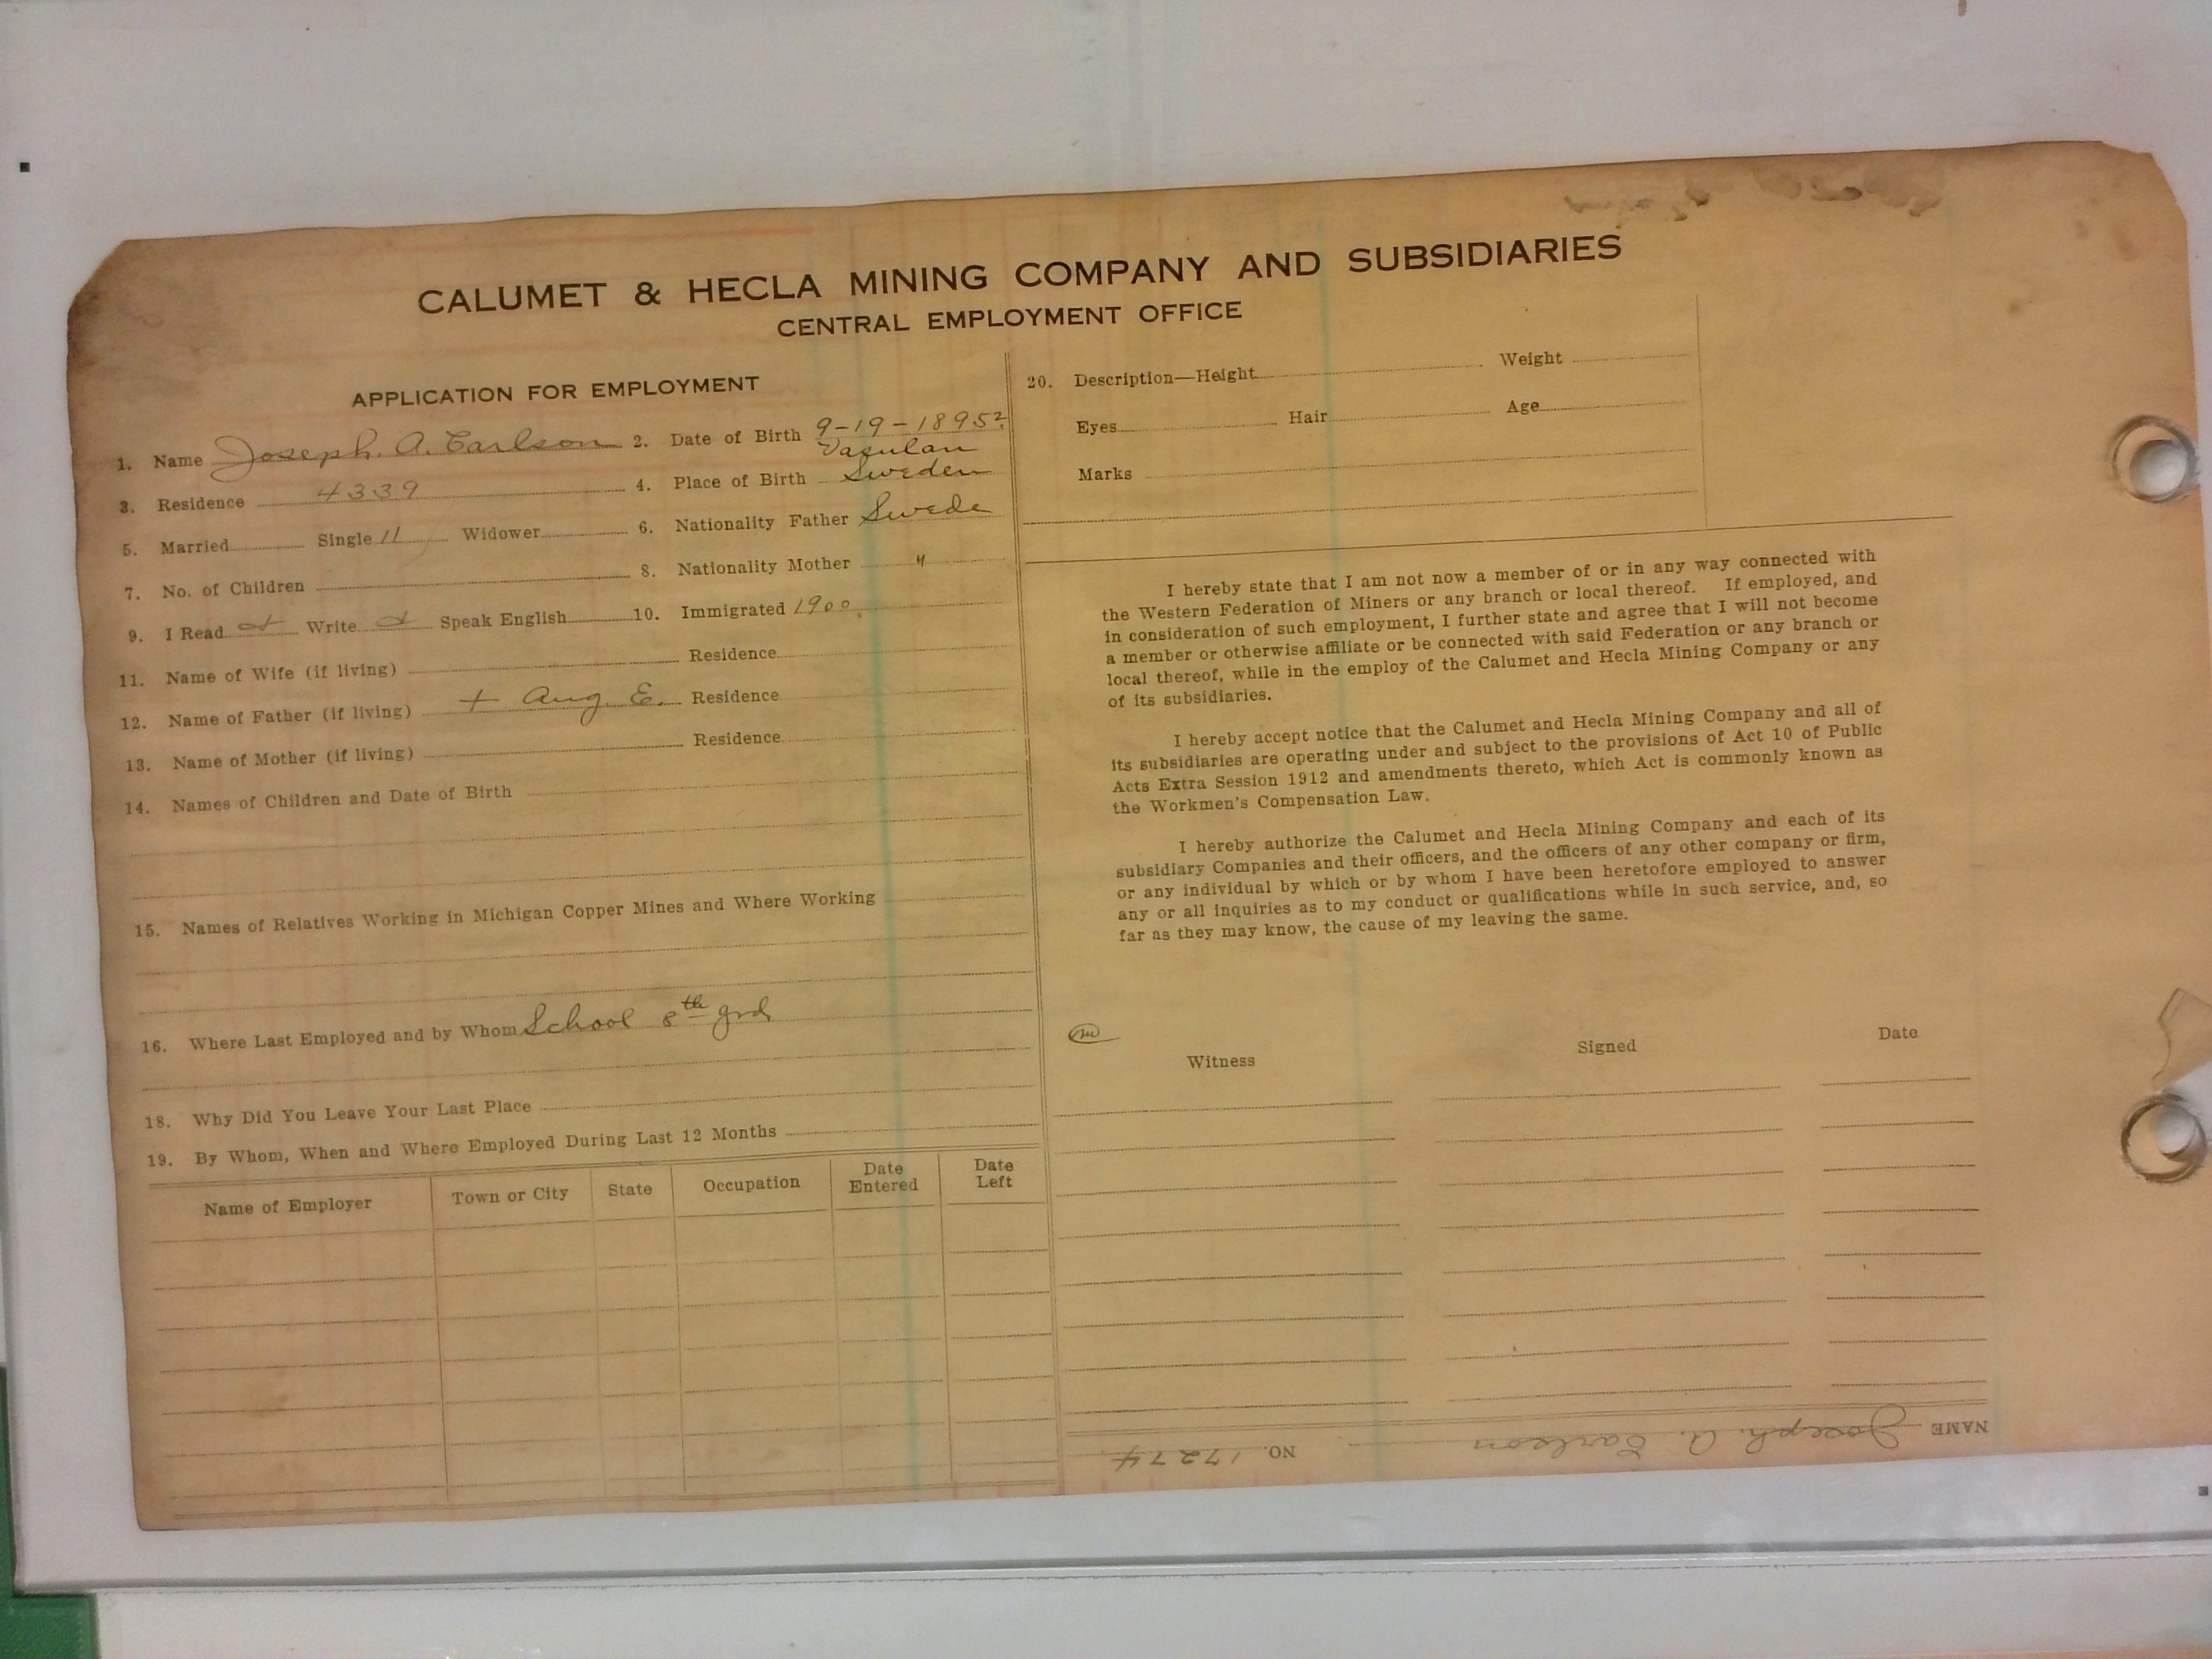 CALUMET & HECLA MINING COMPANY AND SUBSIDIARIES
CENTRAL EMPLOYMENT OFFICE
APPLICATION FOR EMPLOYMENT
1. Name Joseph. A. Carlson 2. Date of Birth 9-19-1895?
3. Residence 4339 4. Place of Birth Vasulan Sweden
5. Married Single 11 Widower 6. Nationality Father Swede
7. No. of Children 8. Nationality Mother "
9. I Read Write Speak English 10. Immigrated 1900.
11. Name of Wife (if living) Residence
12. Name of Father (if living) + Aug. E. Residence
13. Name of Mother (if living) Residence
14. Names of Children and Date of Birth
15. Names of Relatives Working in Michigan Copper Mines and Where Working
16. Where Last Employed and by Whom School 8th grd
18. Why Did You Leave Your Last Place
19. By Whom, When and Where Employed During Last 12 Months
Name of Employer Town or City State Occupation Date Entered Date Left
20. Description—Height Weight
Eyes Hair Age
Marks
I hereby state that I am not now a member of or in any way connected with
the Western Federation of Miners or any branch or local thereof. If employed, and
in consideration of such employment, I further state and agree that I will not become
a member or otherwise affiliate or be connected with said Federation or any branch or
local thereof, while in the employ of the Calumet and Hecla Mining Company or any
of its subsidiaries.
I hereby accept notice that the Calumet and Hecla Mining Company and all of
its subsidiaries are operating under and subject to the provisions of Act 10 of Public
Acts Extra Session 1912 and amendments thereto, which Act is commonly known as
the Workmen's Compensation Law.
I hereby authorize the Calumet and Hecla Mining Company and each of its
subsidiary Companies and their officers, and the officers of any other company or firm,
or any individual by which or by whom I have been heretofore employed to answer
any or all inquiries as to my conduct or qualifications while in such service, and, so
far as they may know, the cause of my leaving the same.
Witness Signed Date
NAME Joseph. A. Carlson NO. 17274